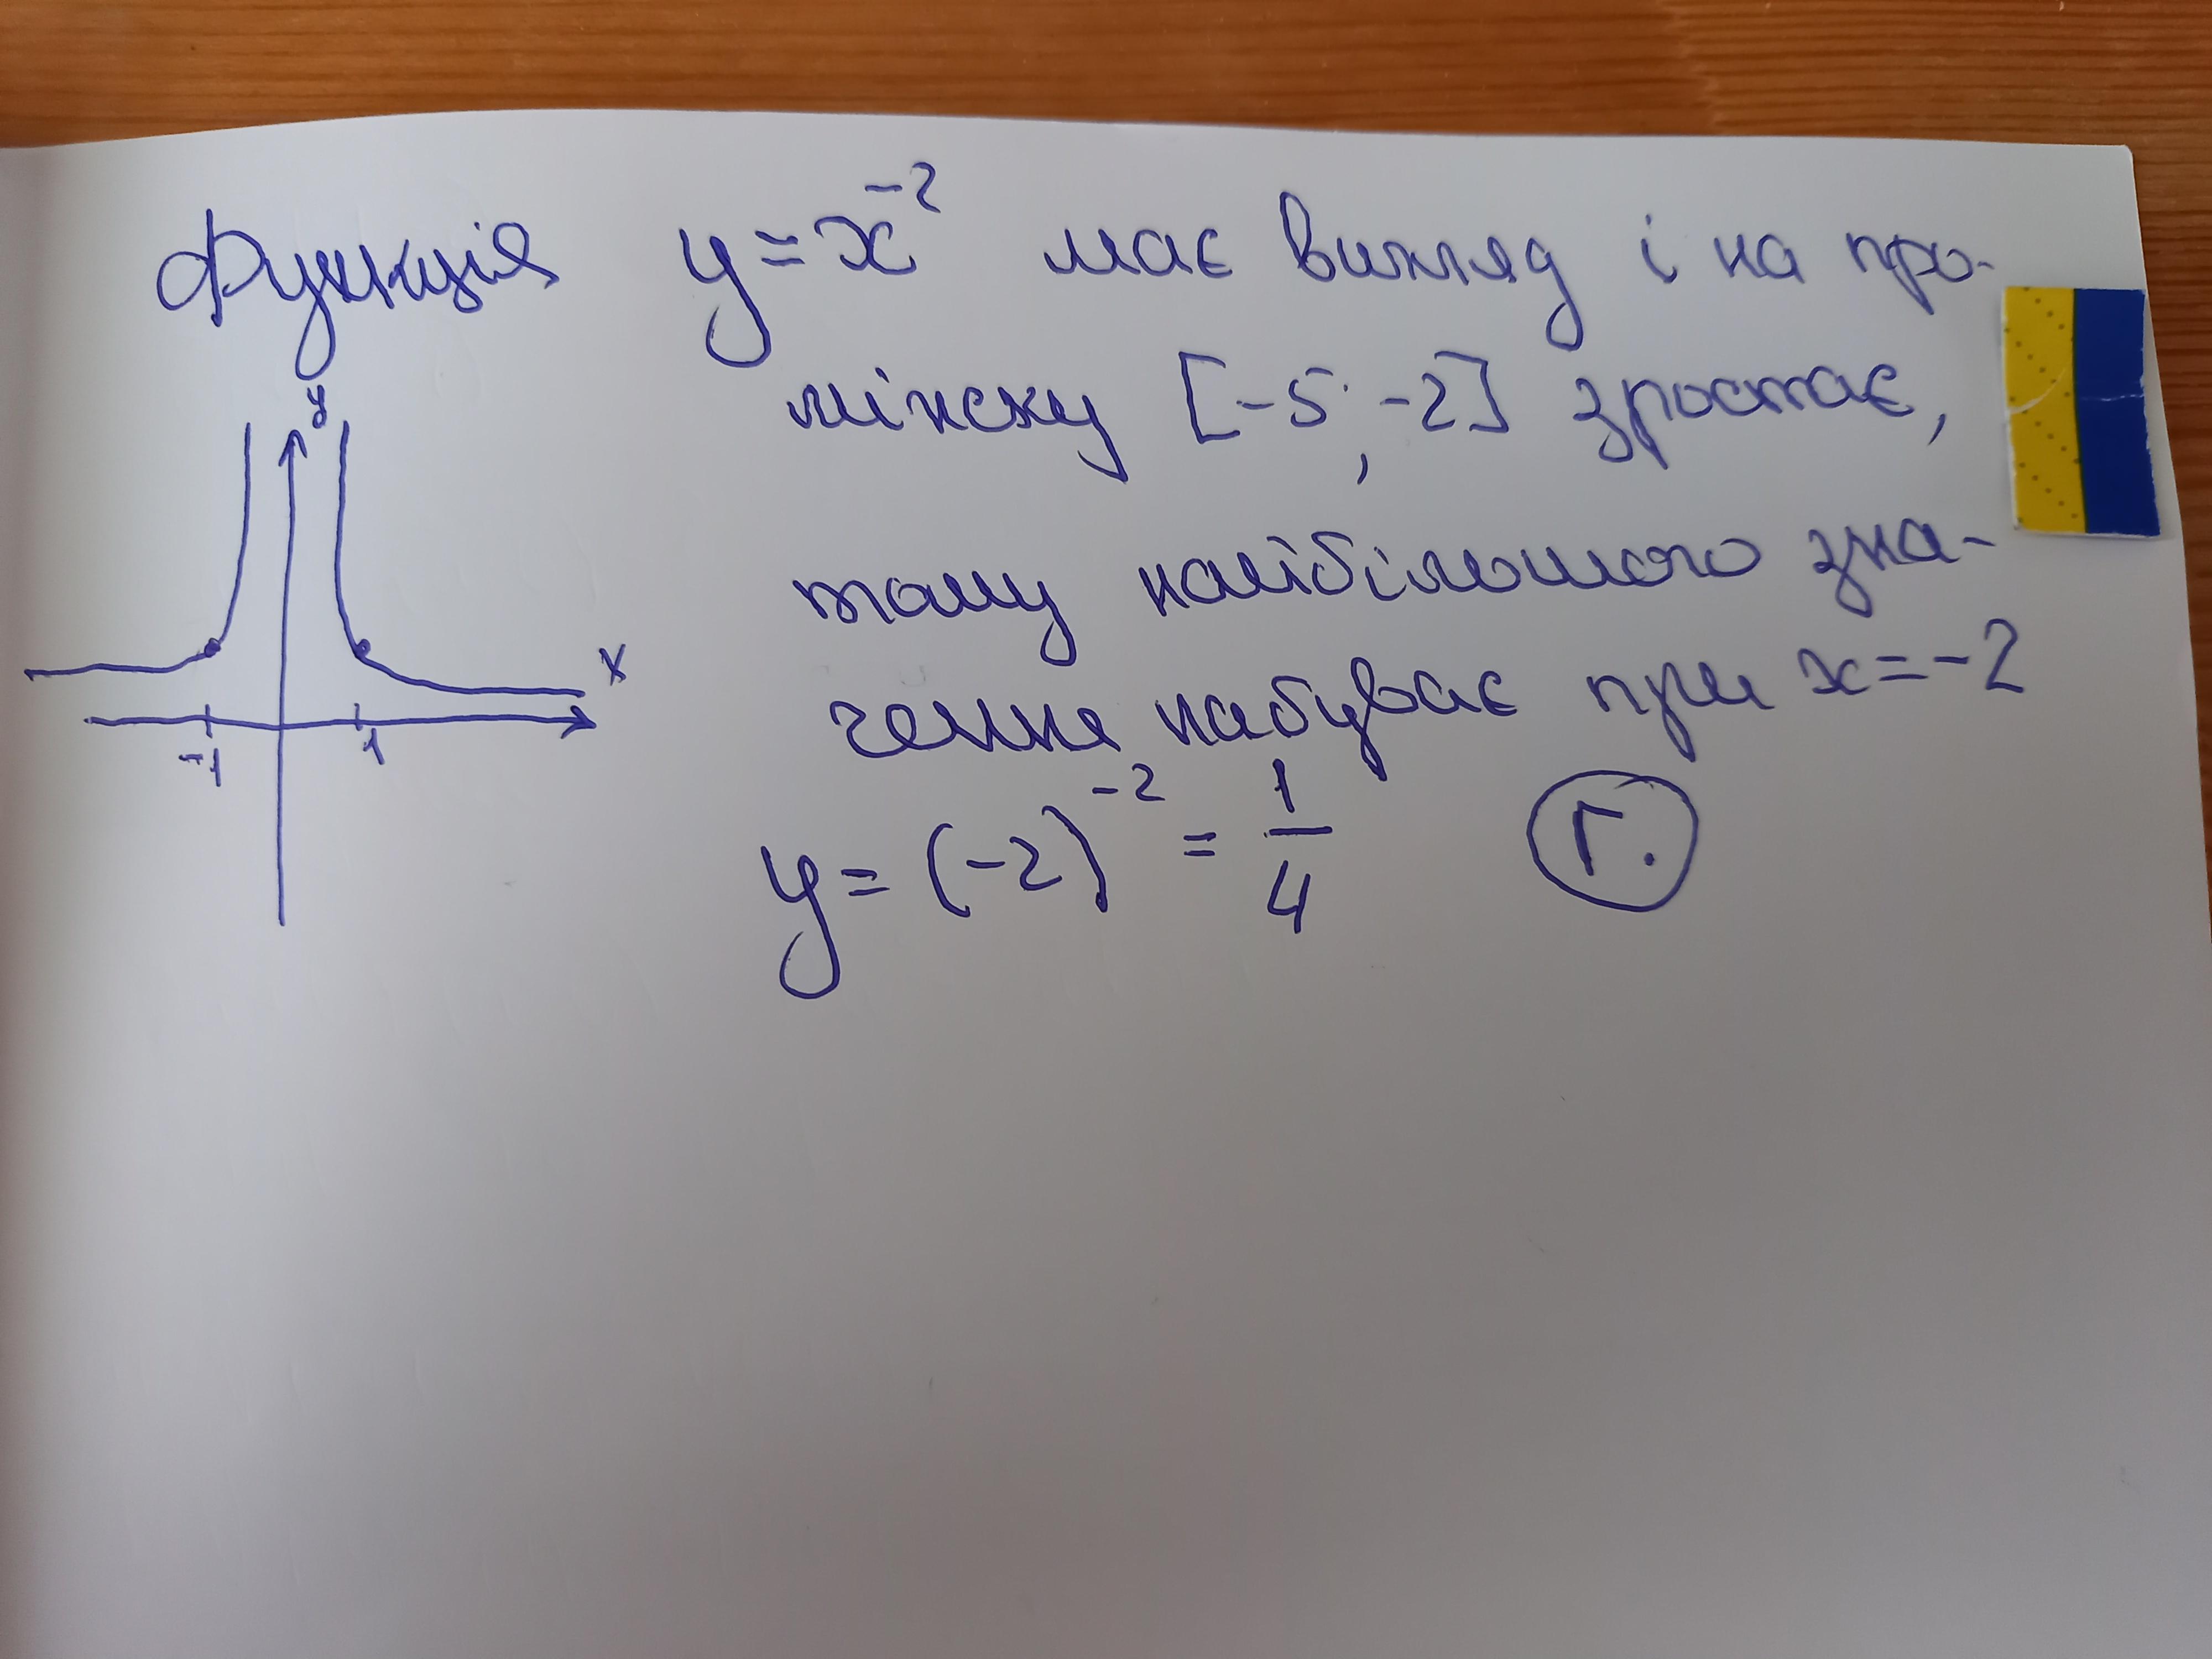 Функція y = x⁻² має вигляд і на про-
міжку [-5; -2] зростає,
тому найбільшого зна-
чення набуває при x = -2
y = (-2)⁻² = 1/4 Г.
y
x
-1 1